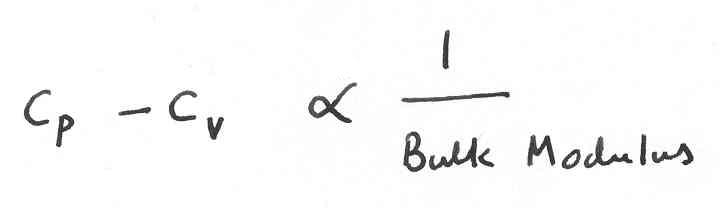 Cp - Cv ∝ 1 / Bulk Modulus